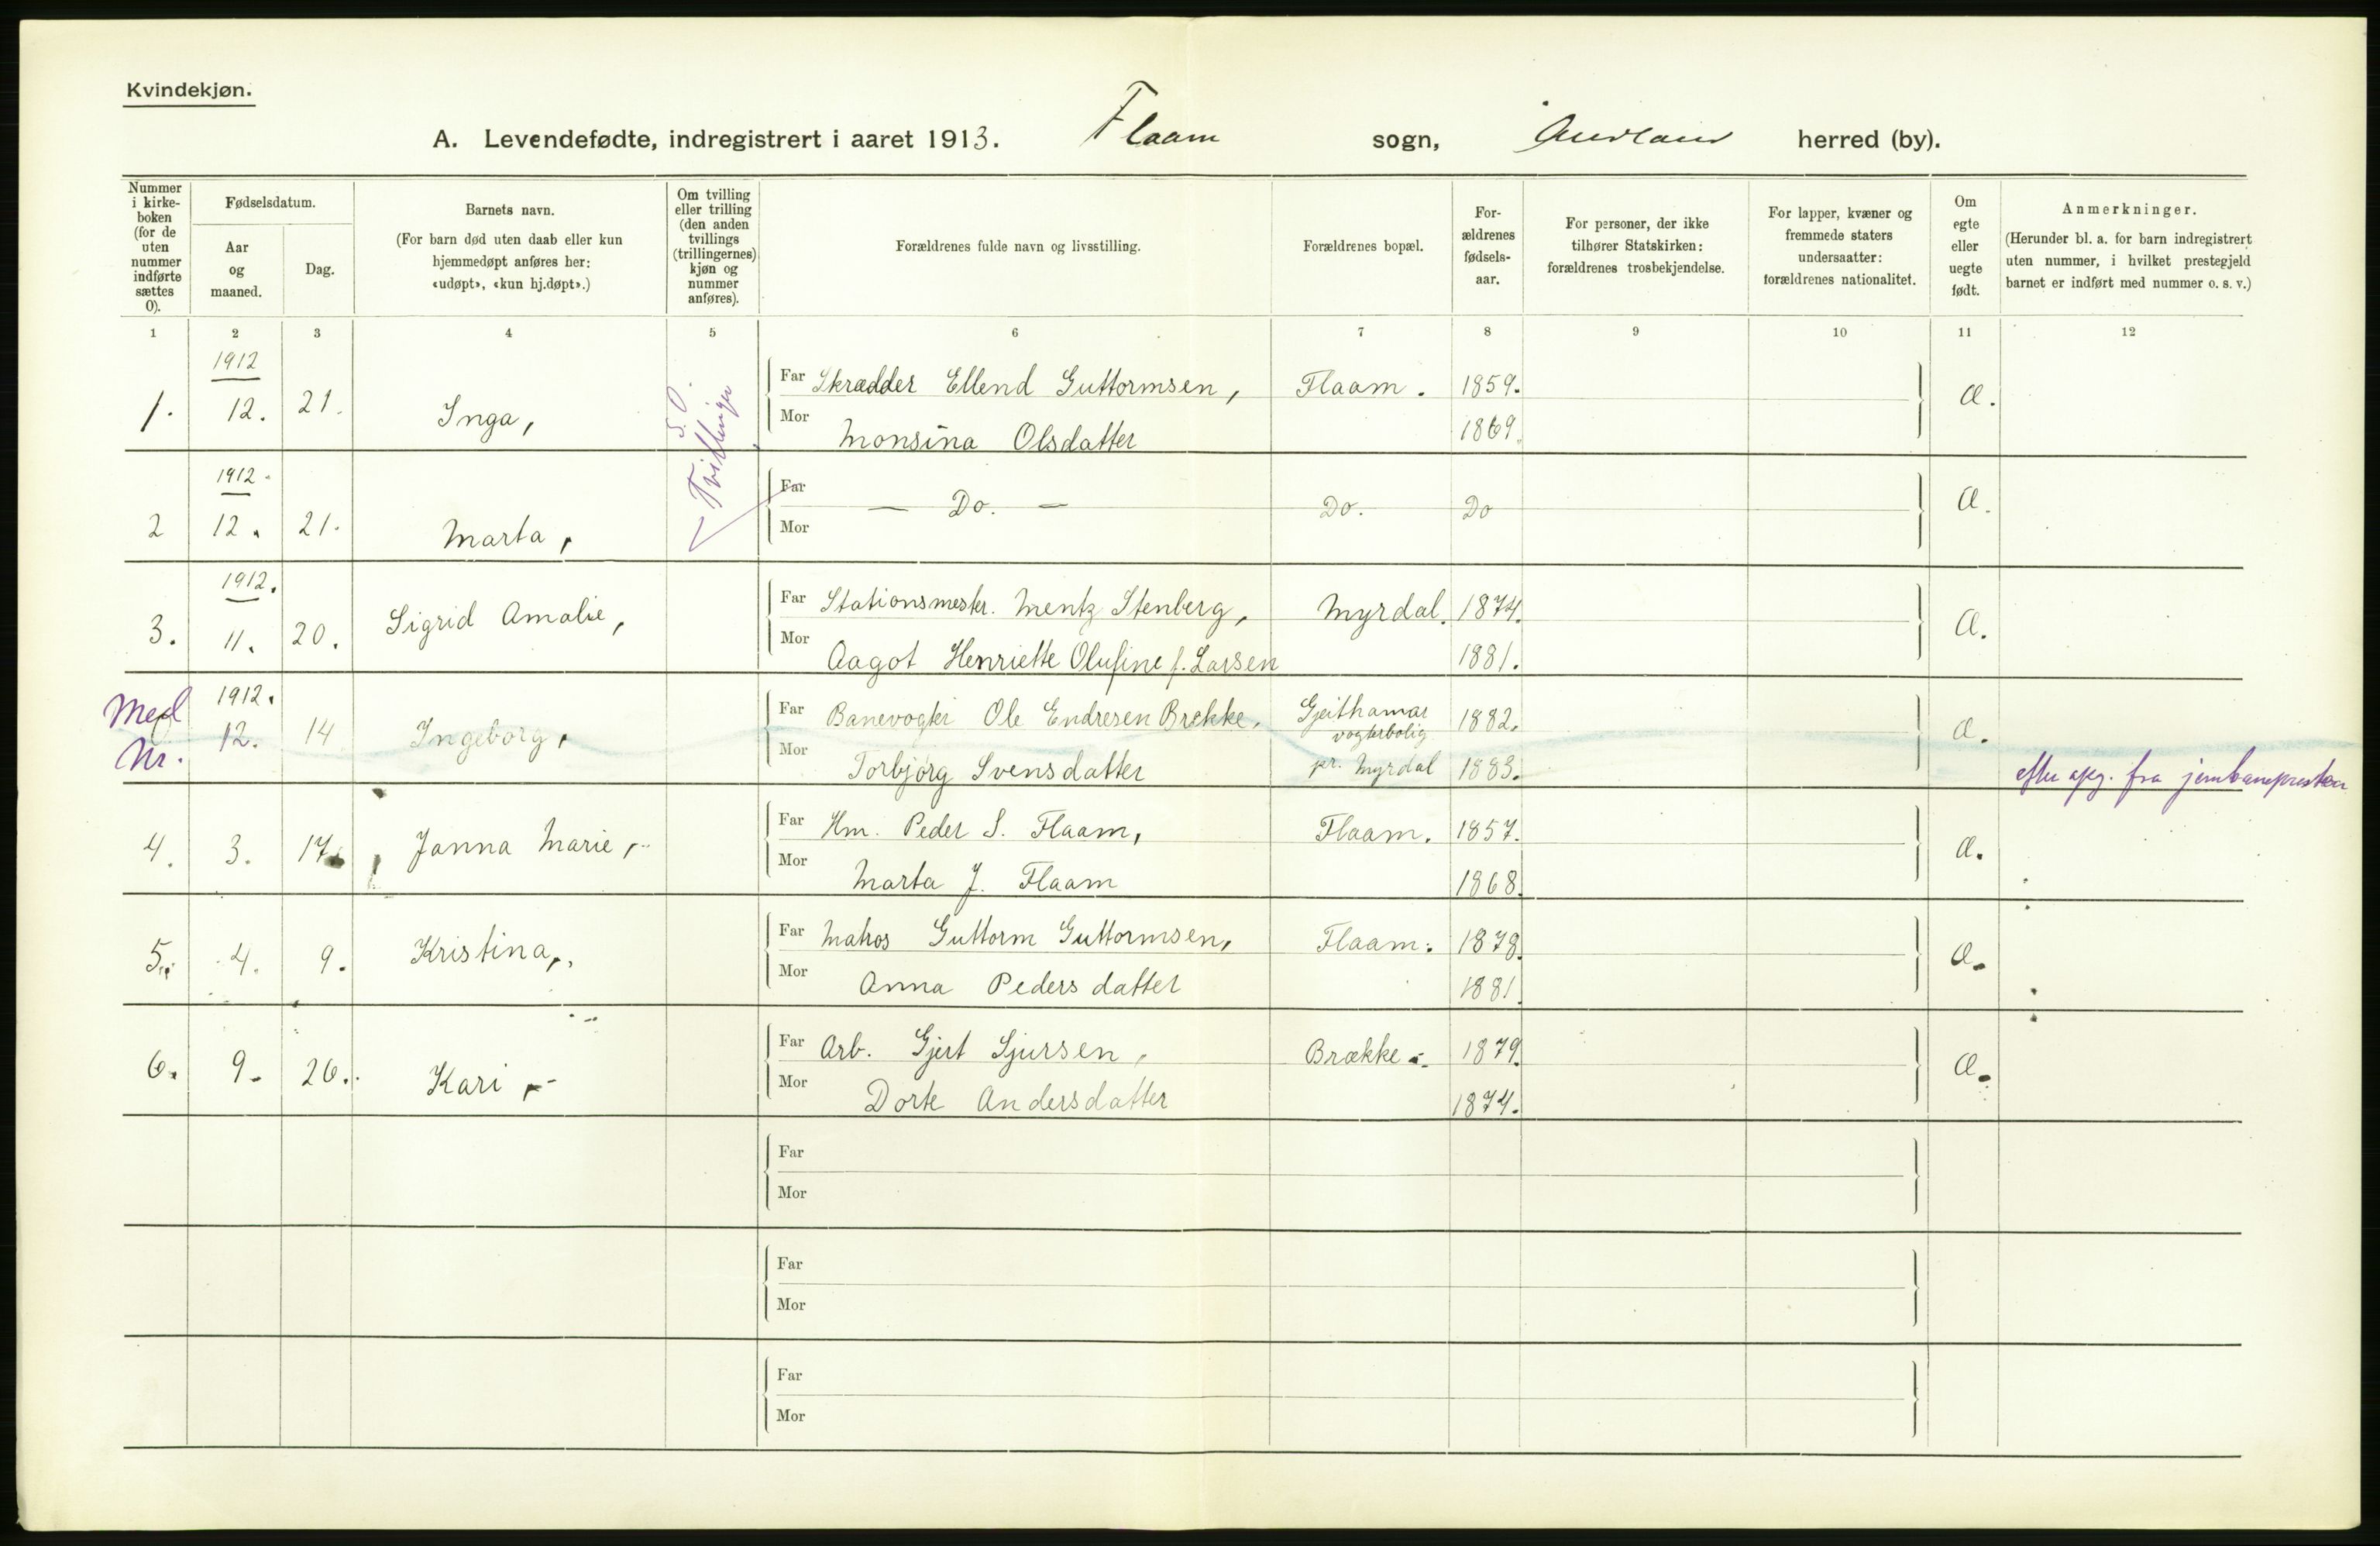 Kvindekjøn.
A. Levendefødte, indregistrert i aaret 1913. Flaam sogn, Aurland herred (by).
Nummer i kirke-boken (for de uten nummer indførte sættes 0).
Fødselsdatum.
Aar og maaned.
Dag.
Barnets navn.
(For barn død uten daab eller kun hjemmedøpt anføres her: «udøpt», «kun hj.døpt».)
Om tvilling eller trilling (den anden tvillings (trillingernes) kjøn og nummer anføres).
Forældrenes fulde navn og livsstilling.
Forældrenes bopæl.
For-ældrenes fødsels-aar.
For personer, der ikke tilhører Statskirken: forældrenes trosbekjendelse.
For lapper, kvæner og fremmede staters undersaatter: forældrenes nationalitet.
Om egte eller uegte født.
Anmerkninger.
(Herunder bl. a. for barn indregistrert uten nummer, i hvilket prestegjeld barnet er indført med nummer o. s. v.)
1 2 3 4 5 6 7 8 9 10 11 12
1912
1. 12. 21. Inga, Tvillinger Far Skrædder Ellend Guttormsen, Flaam. 1859. Æ.
Mor Monsina Olsdatter 1869.
1912.
2 12. 21. Marta, Far Mor — Do. — Do. Do Æ.
1912.
3. 11. 20. Sigrid Amalie, Far Stationsmester. Mentz Stenberg, Myrdal. 1874. Æ.
Mor Aagot Henriette Olufine f. Larsen 1881.
Med Nr. 1912. 12. 14 Ingeborg, Far Banevogter Ole Endresen Brække, Gjeithamar vogterbolig 1882. Æ.
Mor Torbjørg Svensdatter pr. Myrdal 1883. efter opg. fra jernbanepresten
4. 3. 17. Janna Marie, Far Hm. Peder S. Flaam, Flaam. 1857. Æ.
Mor Marta J. Flaam 1868.
5. 4. 9. Kristina, Far Matros Guttorm Guttormsen, Flaam. 1878. Æ.
Mor Anna Pedersdatter 1881.
6. 9. 26. Kari, Far Arb. Gjert Sjursen, Brække. 1879. Æ.
Mor Dorte Andersdatter 1874.
Far
Mor
Far
Mor
Far
Mor